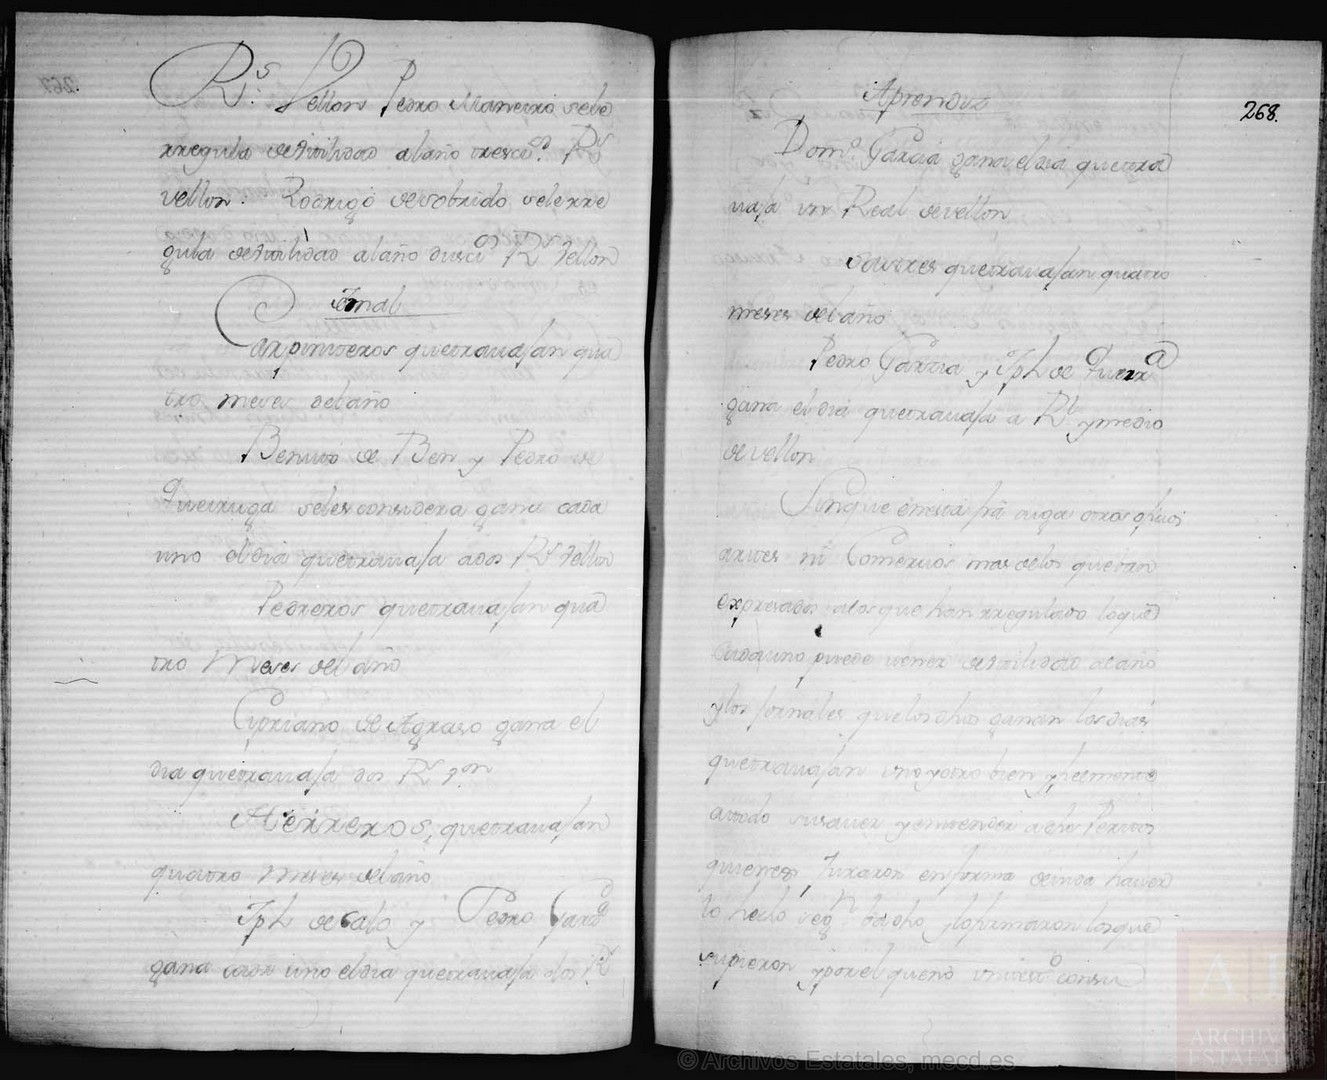 R.s Vellon Pedro Maneiro sele
rregula de Utilidad al año tresci.os R.s
vellon. Rodrigo de sobrido sele rre
gula de Utilidad al año dusci.os R.s Vellon
Jornal
Carpinteros que trauajan qua
tro meses del año
Benito de Ben y Pedro de
Queiruga seles considera gana cada
uno el dia que trauaja a dos R.s Vellon
Pedreros que trauajan qua
tro Meses del año
Cipriano de Agraso gana el
dia que trauaja dos R.s v.on
Herreros, que trauajan
quatro meses del año
Jph de Calo y Pedro Garz.a
gana cada uno el dia que trauaja dos R.s
Aprendiz
Dom.o Garcia gana el dia que tra
uaja un Real de vellon
Sastres que trauajan quatro
meses del año
Pedro Garcia y Jph de Queir.a
gana el dia que trauaja a R.l y medio
de vellon
Sin que en esta fra aiga otros ofizios
artes ni Comercios mas delos que ban
expresados alos que han rregulado loque
Cada uno puede tener de utilidad al año
y los jornales que los dhos ganan los dias
que trauajan uno y otro bien y fielmente
a todo su saver y entender dhos Peritos
quienes Juraron en forma de inda haver
lo hecho seg.n ba dho y lo firmaron los que
supieron y por el que no un test.o consu
268.
267.
© Archivos Estatales, mecd.es
AI
ARCHIVOS
ESTATALES